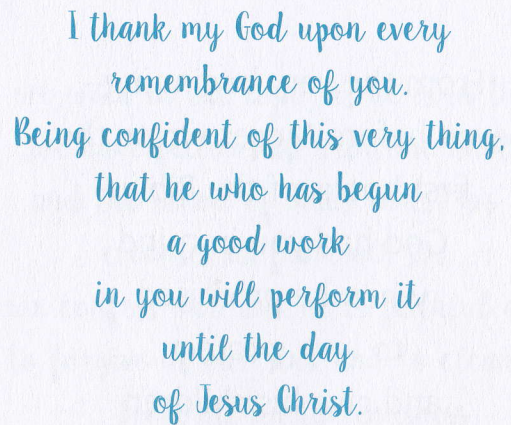 I thank my God upon every
remembrance of you.
Being confident of this very thing,
that he who has begun
a good work
in you will perform it
until the day
of Jesus Christ.